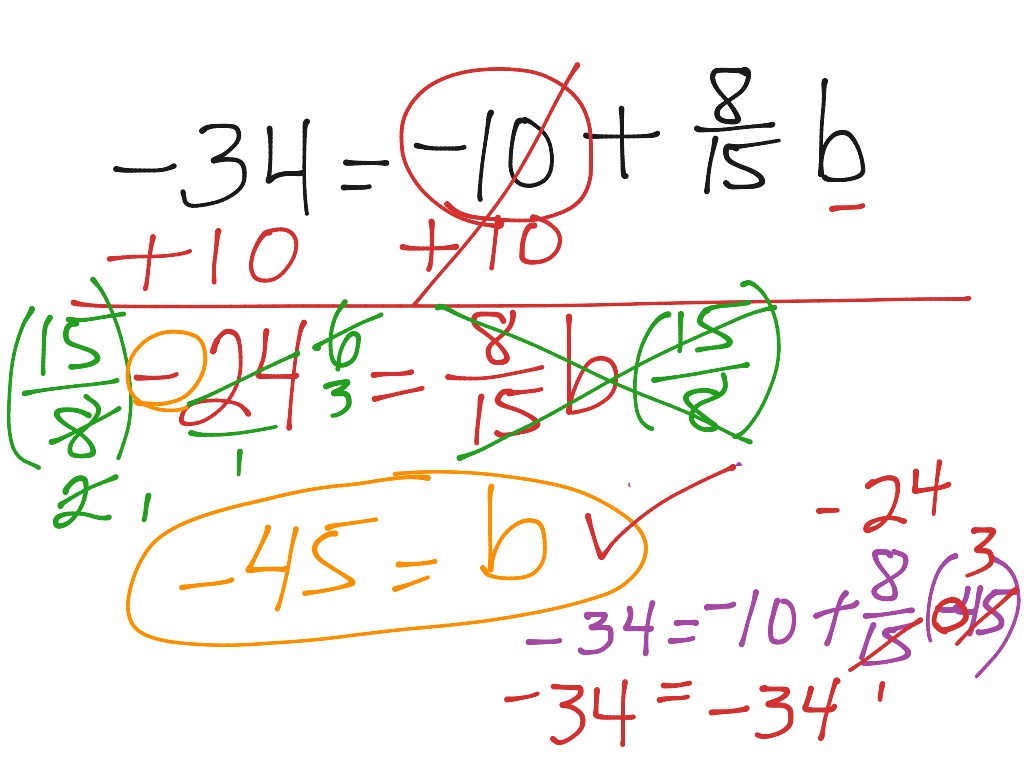 -34 = -10 + 8/15 b
+10 +10
(15/8) -24 6 3 = 8/15 b (15/8)
2 1 1
-45 = b ✓
-24
3
-34 = -10 + 8/15 (-45)
1
-34 = -34